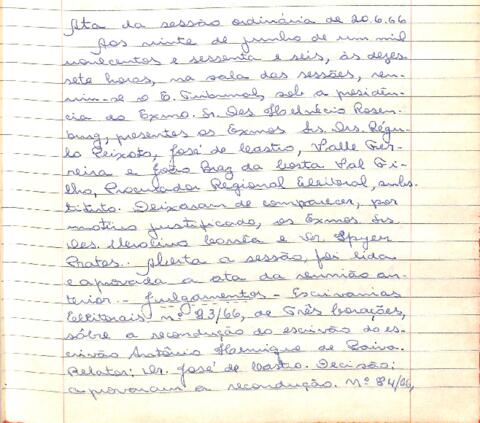 Ata da sessão ordinária de 20.6.66
Aos vinte de junho de um mil
novecentos e sessenta e seis, às dezes
sete horas, na sala das sessões, reu-
niu-se o E. Tribunal, sob a presidên-
cia do Exmo. Sr. Des. Helvécio Rosen-
burg, presentes os Exmos. Srs. Drs. Régu-
lo Peixoto, José de Castro, Valle Fer-
reira e João Braz da Costa Val Fi-
lho, Procurador Regional Eleitoral, subs-
tituto. Deixaram de comparecer, por
motivo justificado, os Exmos. Srs.
Des. Merolino Corrêa e Dr. Spyer
Prates. Aberta a sessão, foi lida
e aprovada a ata da reunião an-
terior. - Julgamentos - Escrivanias
Eleitorais nº 83/66, de Três Corações,
sôbre a recondução do escrivão do es-
crivão Antônio Henrique de Paiva.
Relator: Dr. José de Castro. Decisão:
aprovaram a recondução. Nº 84/66,